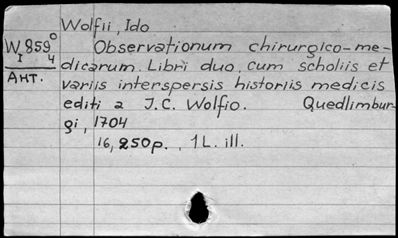 Wolfii, Ido
W 859°
I 4
Ант.
Observationum chirurgico-me-
dicarum. Libri duo, cum scholiis et
variis interspersis historiis medicis
editi a J.C. Wolfio. Quedlimbur-
gi, 1704
16, 250p., 1L. ill.